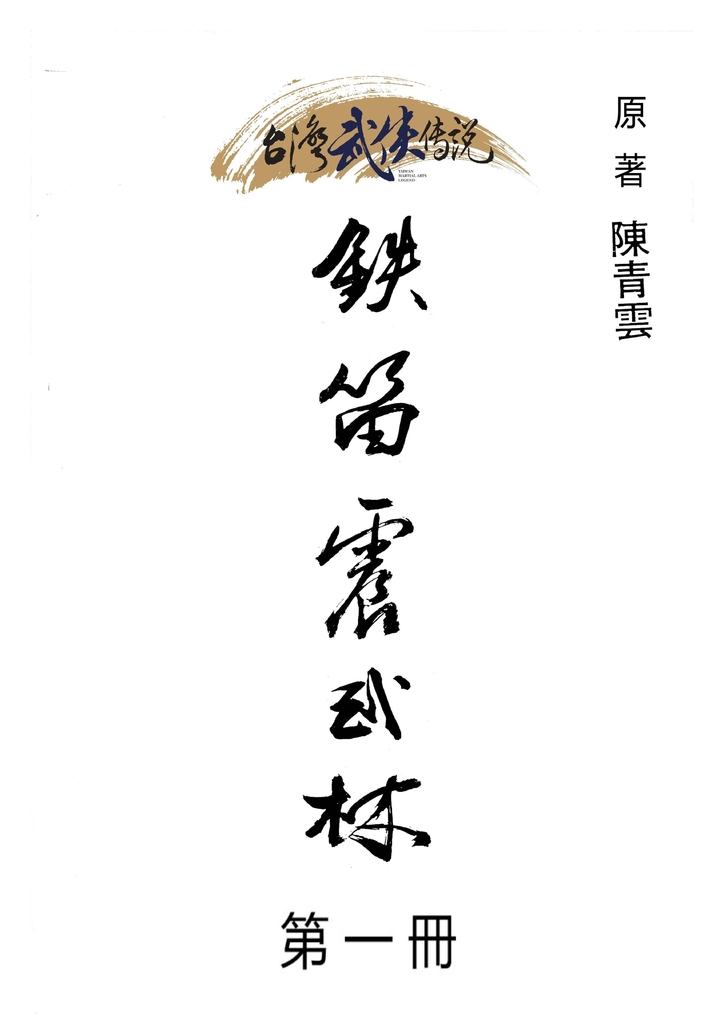 台灣武侠傳説
TAIWAN
MARTIAL ARTS
LEGEND
原著 陳青雲
鉄笛震武林
第一冊